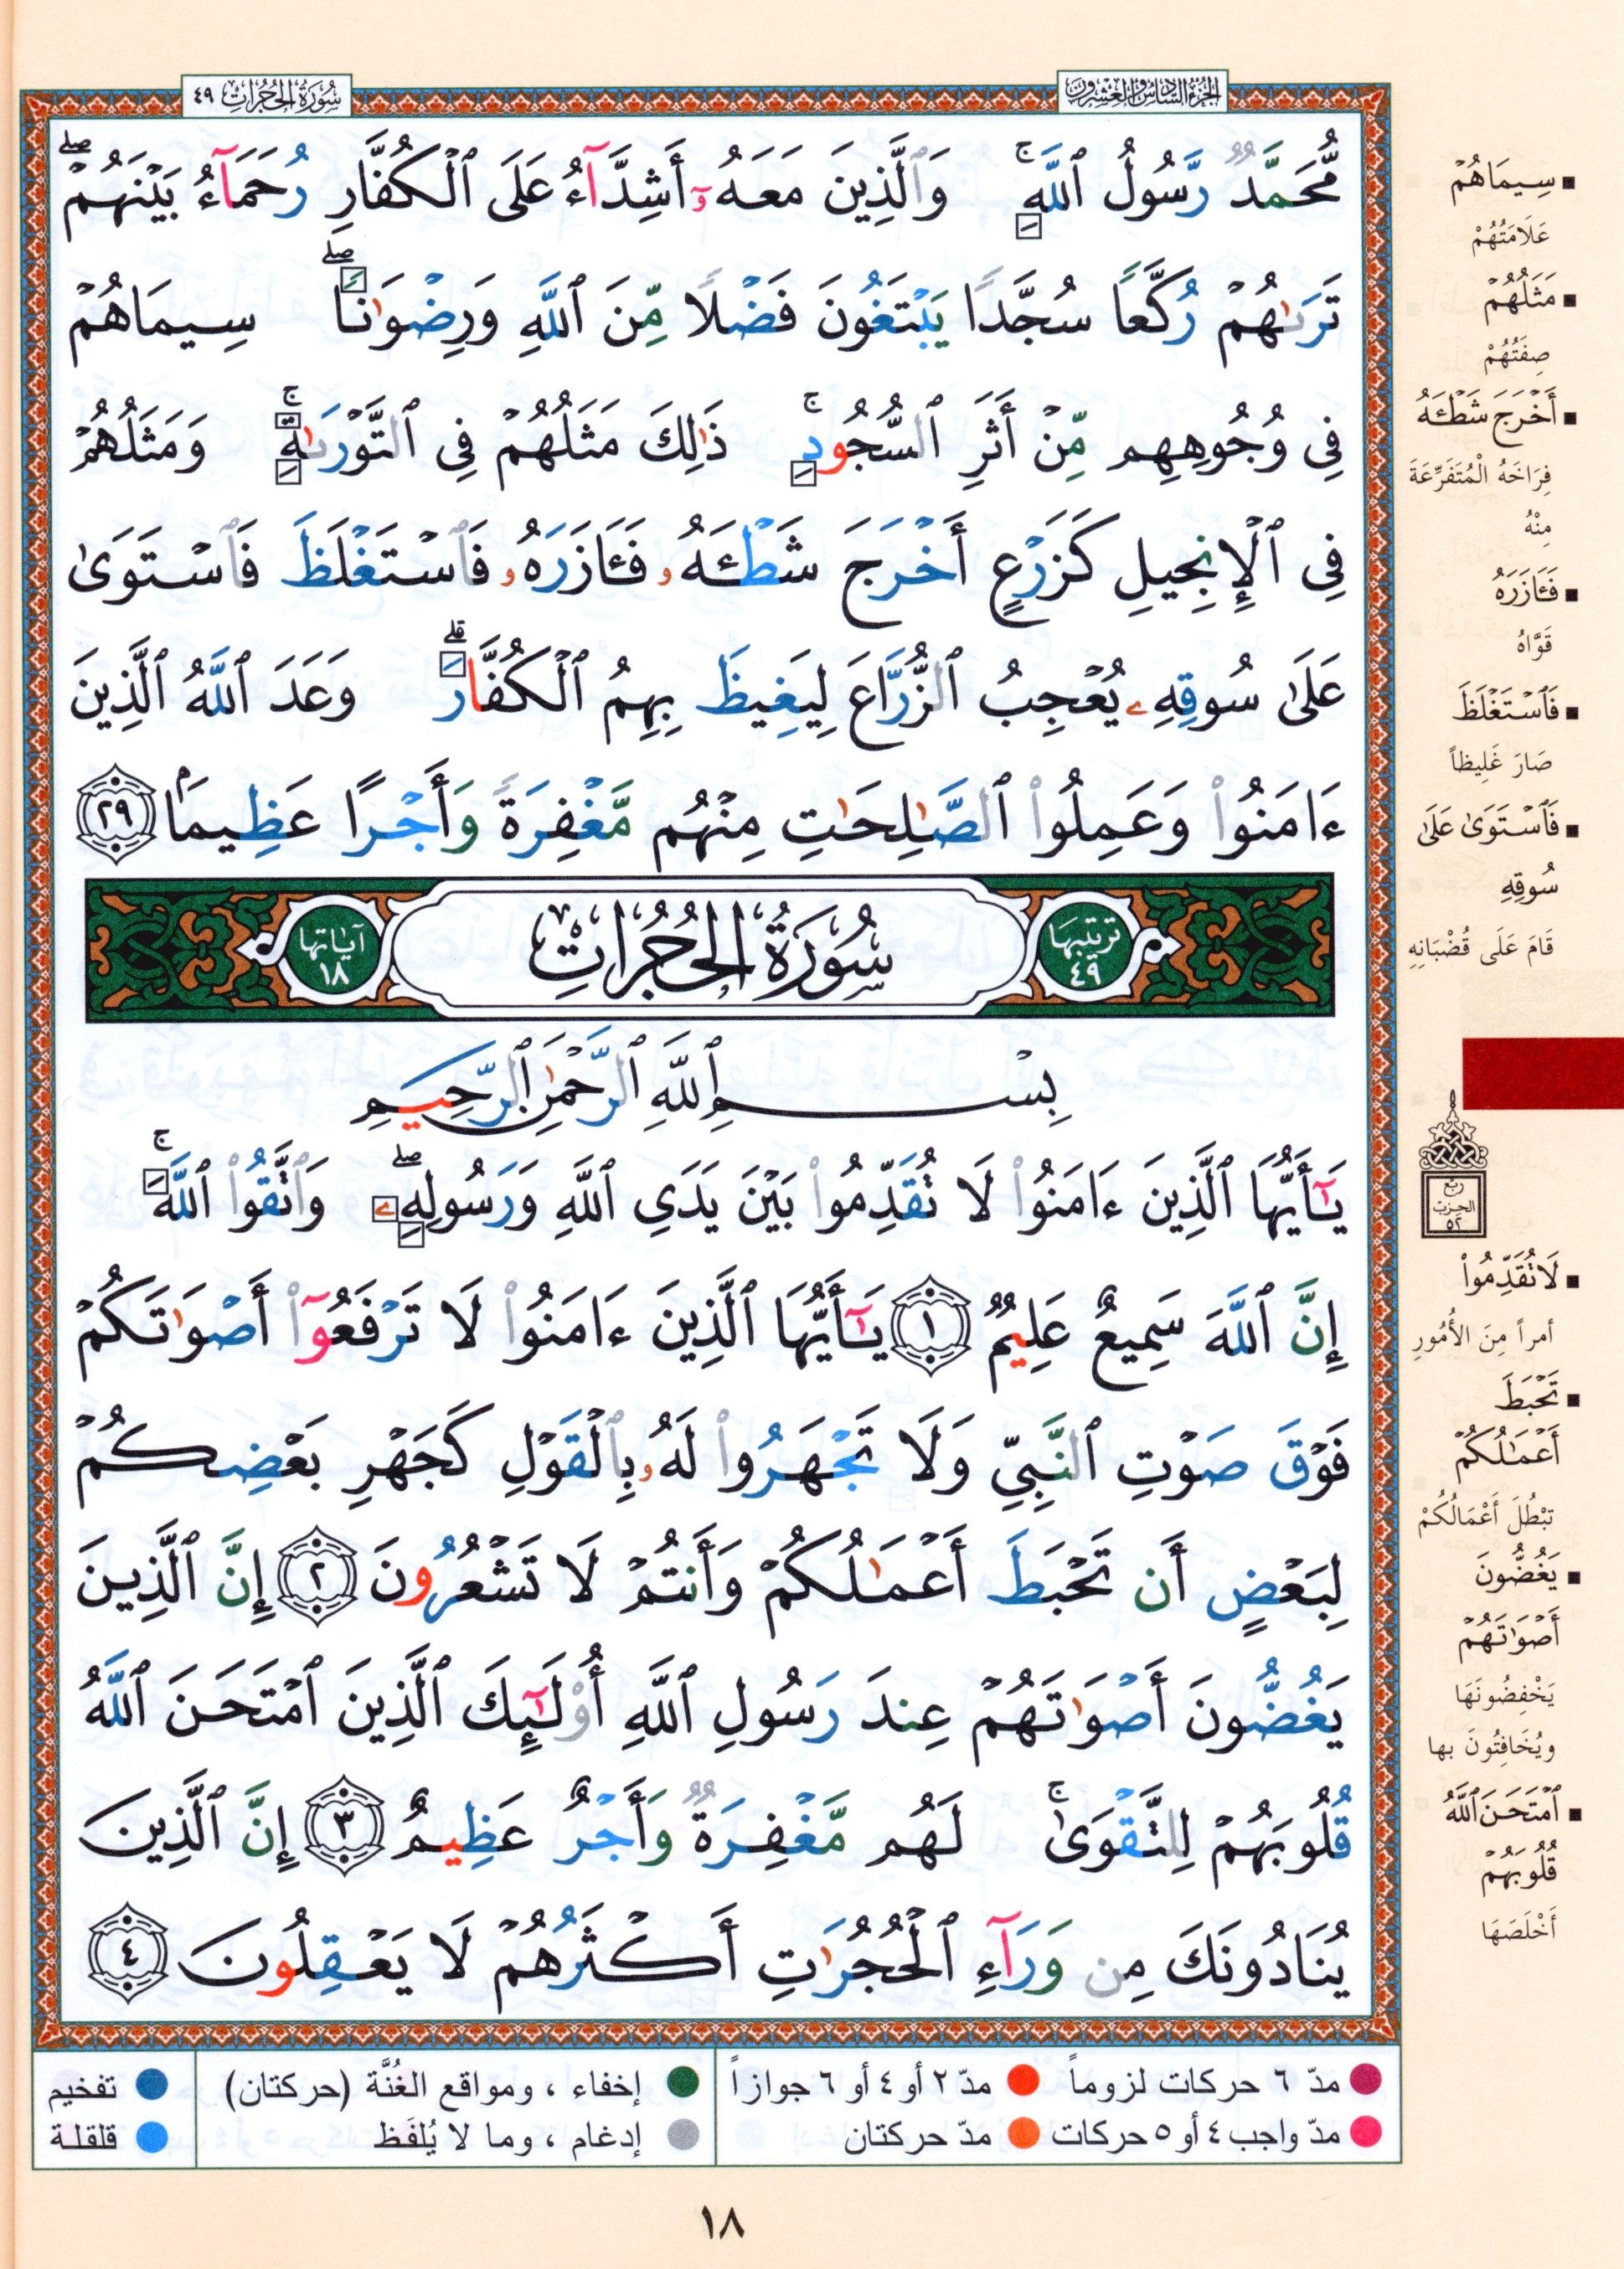 الجزء السادس والعشرون
سورة الحجرات ٤٩
مُّحَمَّدٌ رَّسُولُ ٱللَّهِۚ وَٱلَّذِينَ مَعَهُۥٓ أَشِدَّآءُ عَلَى ٱلْكُفَّارِ رُحَمَآءُ بَيْنَهُمْۖ
تَرَىٰهُمْ رُكَّعًا سُجَّدًا يَبْتَغُونَ فَضْلًا مِّنَ ٱللَّهِ وَرِضْوَٰنًاۖ سِيمَاهُمْ
فِى وُجُوهِهِم مِّنْ أَثَرِ ٱلسُّجُودِۚ ذَٰلِكَ مَثَلُهُمْ فِى ٱلتَّوْرَىٰةِۚ وَمَثَلُهُمْ
فِى ٱلْإِنجِيلِ كَزَرْعٍ أَخْرَجَ شَطْـَٔهُۥ فَـَٔازَرَهُۥ فَٱسْتَغْلَظَ فَٱسْتَوَىٰ
عَلَىٰ سُوقِهِۦ يُعْجِبُ ٱلزُّرَّاعَ لِيَغِيظَ بِهِمُ ٱلْكُفَّارَۗ وَعَدَ ٱللَّهُ ٱلَّذِينَ
ءَامَنُوا۟ وَعَمِلُوا۟ ٱلصَّـٰلِحَـٰتِ مِنْهُم مَّغْفِرَةً وَأَجْرًا عَظِيمًۢا ٢٩
ترتيبها ٤٩ سُورَةُ الحُجُرَاتِ آياتها ١٨
بِسْمِ ٱللَّهِ ٱلرَّحْمَـٰنِ ٱلرَّحِيمِ
يَـٰٓأَيُّهَا ٱلَّذِينَ ءَامَنُوا۟ لَا تُقَدِّمُوا۟ بَيْنَ يَدَىِ ٱللَّهِ وَرَسُولِهِۦۖ وَٱتَّقُوا۟ ٱللَّهَۚ
إِنَّ ٱللَّهَ سَمِيعٌ عَلِيمٌ ١ يَـٰٓأَيُّهَا ٱلَّذِينَ ءَامَنُوا۟ لَا تَرْفَعُوٓا۟ أَصْوَٰتَكُمْ
فَوْقَ صَوْتِ ٱلنَّبِىِّ وَلَا تَجْهَرُوا۟ لَهُۥ بِٱلْقَوْلِ كَجَهْرِ بَعْضِكُمْ
لِبَعْضٍ أَن تَحْبَطَ أَعْمَـٰلُكُمْ وَأَنتُمْ لَا تَشْعُرُونَ ٢ إِنَّ ٱلَّذِينَ
يَغُضُّونَ أَصْوَٰتَهُمْ عِندَ رَسُولِ ٱللَّهِ أُو۟لَـٰٓئِكَ ٱلَّذِينَ ٱمْتَحَنَ ٱللَّهُ
قُلُوبَهُمْ لِلتَّقْوَىٰۚ لَهُم مَّغْفِرَةٌ وَأَجْرٌ عَظِيمٌ ٣ إِنَّ ٱلَّذِينَ
يُنَادُونَكَ مِن وَرَآءِ ٱلْحُجُرَٰتِ أَكْثَرُهُمْ لَا يَعْقِلُونَ ٤
سِيمَاهُمْ
عَلَامَتُهُمْ
مَثَلُهُمْ
صِفَتُهُمْ
أَخْرَجَ شَطْـَٔهُ
فِرَاخَهُ الْمُتَفَرِّعَةَ
مِنْهُ
فَـَٔازَرَهُ
قَوَّاهُ
فَٱسْتَغْلَظَ
صَارَ غَلِيظاً
فَٱسْتَوَىٰ عَلَىٰ
سُوقِهِ
قَامَ عَلَى قُضْبَانِهِ
ربع
الحزب
٥٢
لَا تُقَدِّمُوا۟
أمراً مِنَ الأُمُورِ
تَحْبَطَ
أَعْمَـٰلُكُمْ
تَبْطُلَ أَعْمَالُكُمْ
يَغُضُّونَ
أَصْوَٰتَهُمْ
يَخْفِضُونَهَا
ويُخَافِتُونَ بها
ٱمْتَحَنَ ٱللَّهُ
قُلُوبَهُمْ
أَخْلَصَهَا
مدّ ٦ حركات لزوماً مدّ ٢ أو ٤ أو ٦ جوازاً
مدّ واجب ٤ أو ٥ حركات مدّ حركتان
إخفاء ، ومواقع الغُنَّة (حركتان)
إدغام ، وما لا يُلفَظ
تفخيم
قلقلة
١٨